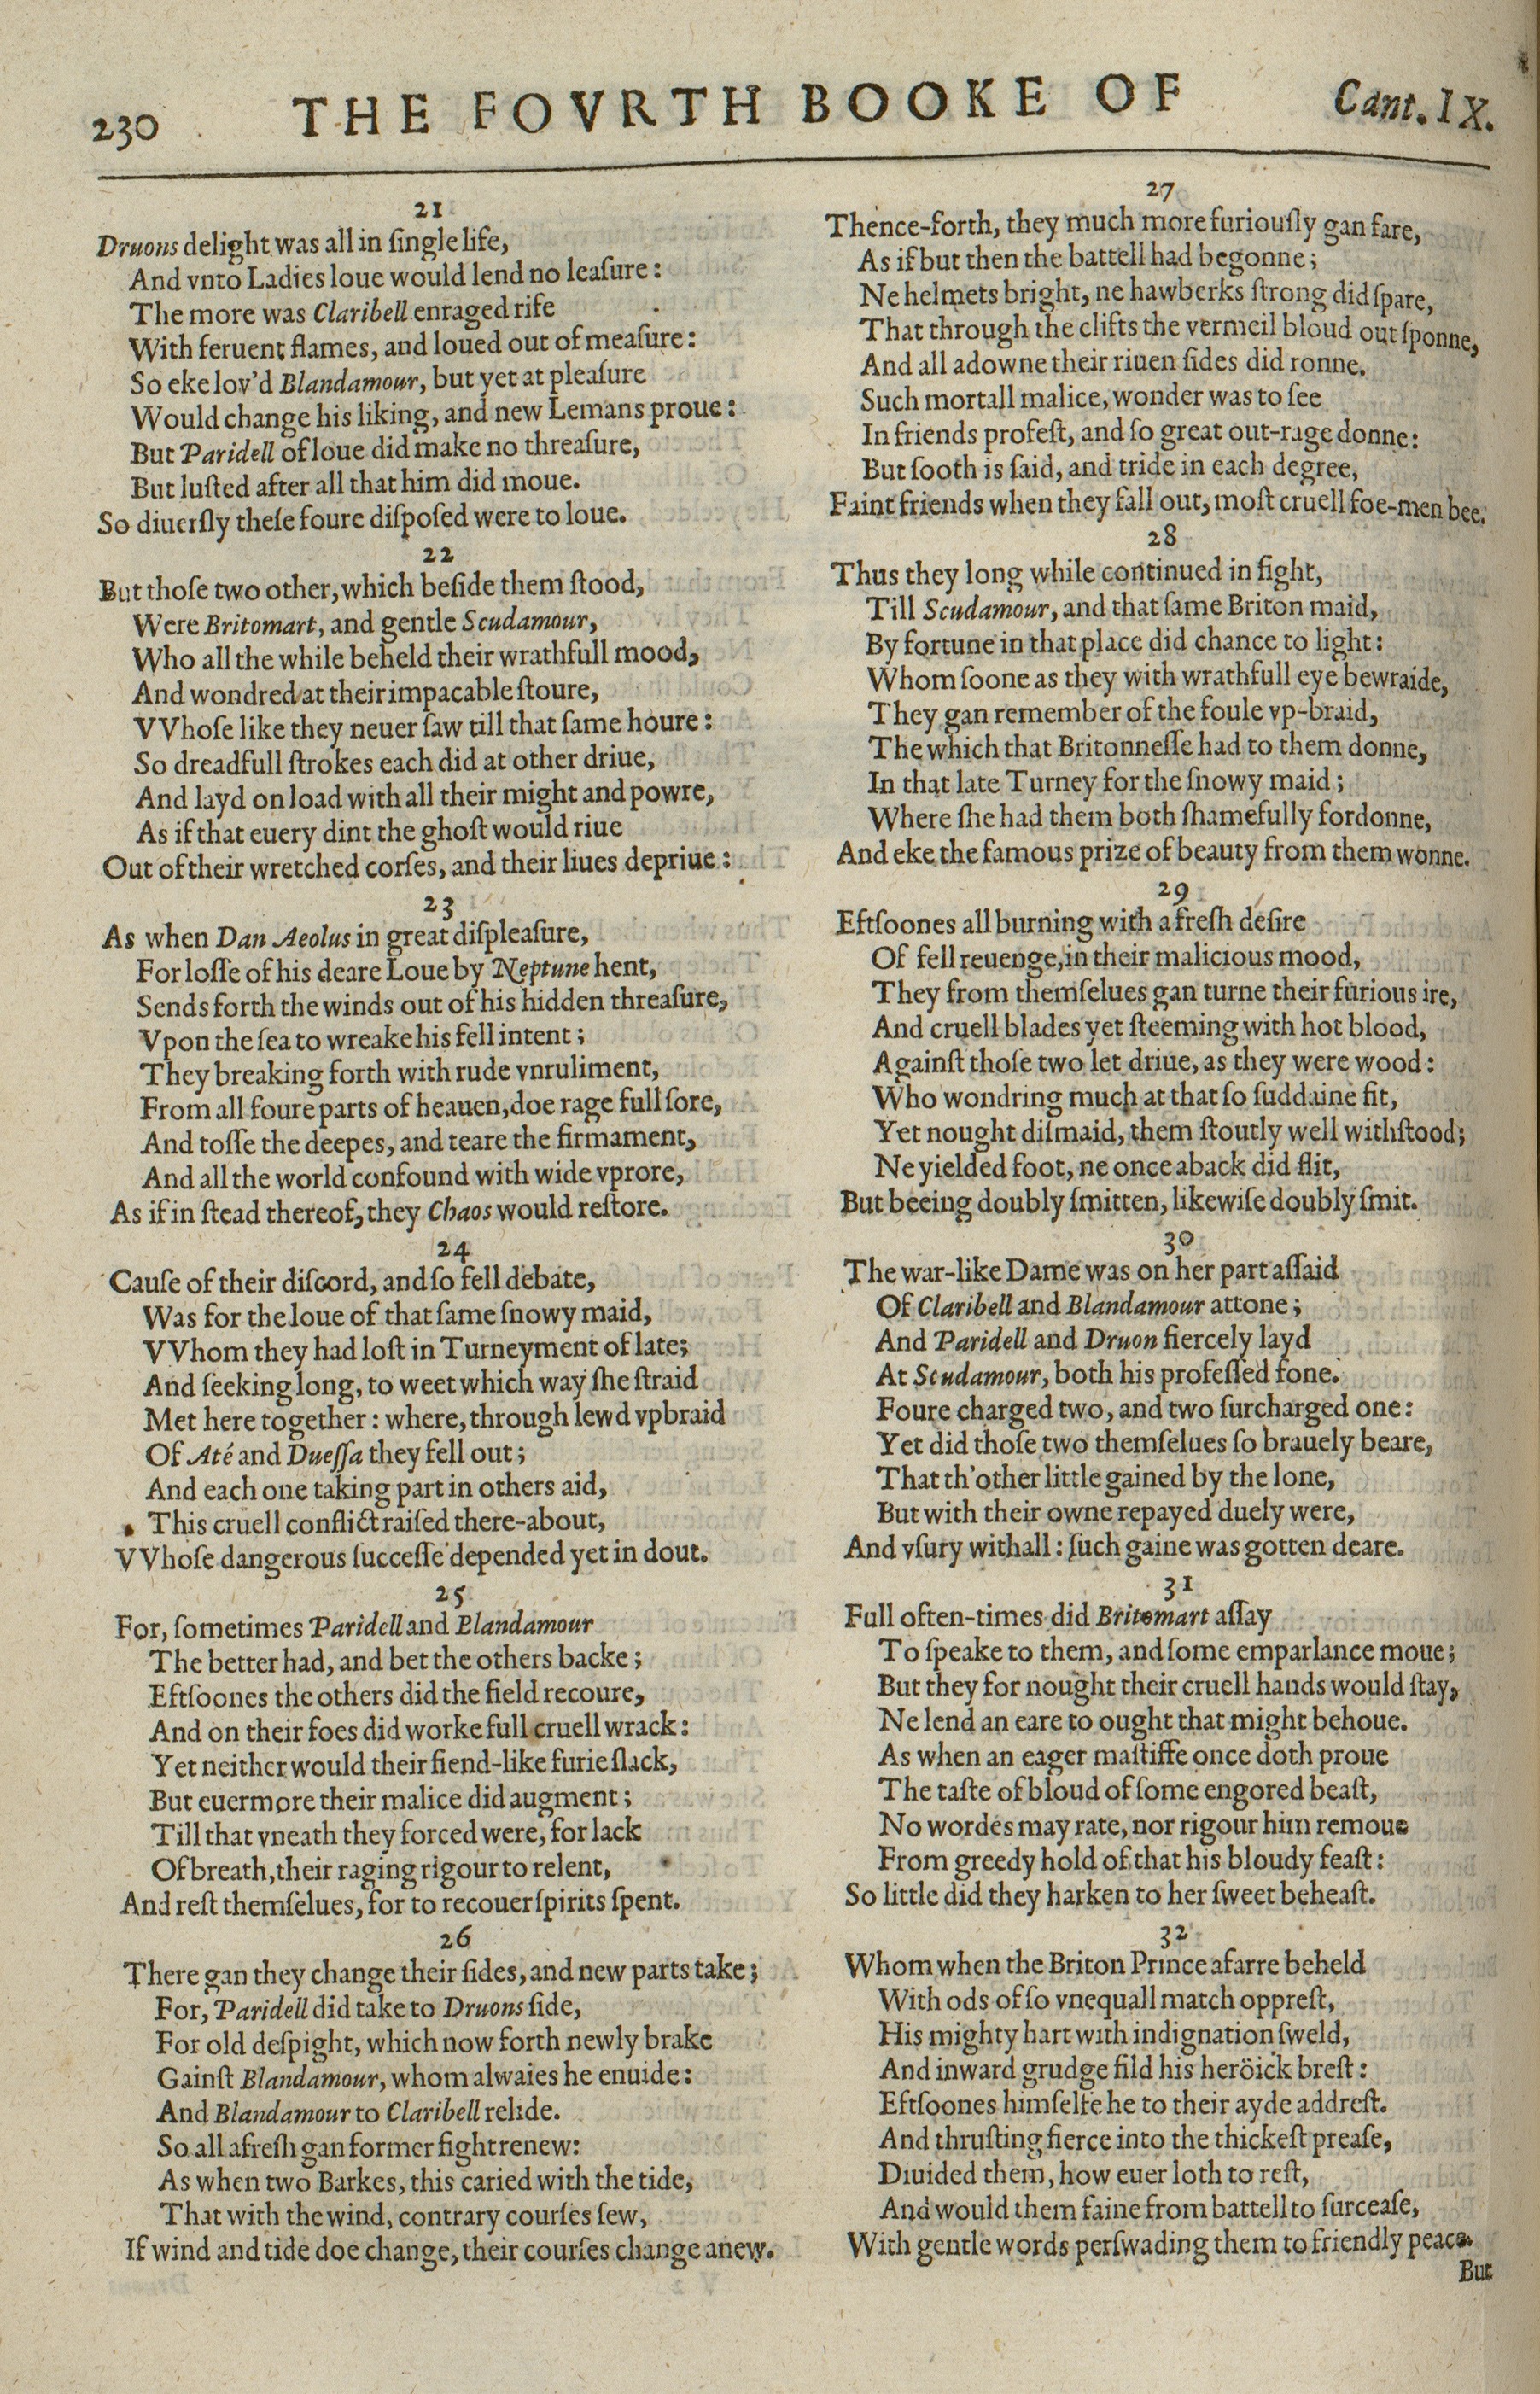 230 THE FOVRTH BOOKE OF Cant. IX.
21
Druons delight was all in ſingle life,
And vnto Ladies loue would lend no leaſure:
The more was Claribell enraged rife
With feruent flames, and loued out of meaſure:
So eke lov'd Blandamour, but yet at pleaſure
Would change his liking, and new Lemans proue:
But Paridell of loue did make no threaſure,
But luſted after all that him did moue.
So diuerſly theſe foure diſpoſed were to loue.
22
But thoſe two other, which beſide them ſtood,
Were Britomart, and gentle Scudamour,
Who all the while beheld their wrathfull mood,
And wondred at their impacable ſtoure,
VVhoſe like they neuer ſaw till that ſame houre:
So dreadfull ſtrokes each did at other driue,
And layd on load with all their might and powre,
As if that euery dint the ghoſt would riue
Out of their wretched corſes, and their liues depriue:
23
As when Dan Aeolus in great diſpleaſure,
For loſſe of his deare Loue by Neptune hent,
Sends forth the winds out of his hidden threaſure,
Vpon the ſea to wreake his fell intent;
They breaking forth with rude vnruliment,
From all foure parts of heauen, doe rage full ſore,
And toſſe the deepes, and teare the firmament,
And all the world confound with wide vprore,
As if in ſtead thereof, they Chaos would reſtore.
24
Cauſe of their diſcord, and ſo fell debate,
Was for the loue of that ſame ſnowy maid,
VVhom they had loſt in Turneyment of late;
And ſeeking long, to weet which way ſhe ſtraid
Met here together: where, through lewd vpbraid
Of Até and Dueſſa they fell out;
And each one taking part in others aid,
This cruell conflict raiſed there-about,
VVhoſe dangerous ſucceſſe depended yet in dout.
25
For, ſometimes Paridell and Blandamour
The better had, and bet the others backe;
Eftſoones the others did the field recoure,
And on their foes did worke full cruell wrack:
Yet neither would their fiend-like furie ſlack,
But euermore their malice did augment;
Till that vneath they forced were, for lack
Of breath, their raging rigour to relent,
And reſt themſelues, for to recouer ſpirits ſpent.
26
There gan they change their ſides, and new parts take;
For, Paridell did take to Druons ſide,
For old deſpight, which now forth newly brake
Gainſt Blandamour, whom alwaies he enuide:
And Blandamour to Claribell relide.
So all afreſh gan former fight renew:
As when two Barkes, this caried with the tide,
That with the wind, contrary courſes ſew,
If wind and tide doe change, their courſes change anew.
27
Thence-forth, they much more furiouſly gan fare,
As if but then the battell had begonne;
Ne helmets bright, ne hawberks ſtrong did ſpare,
That through the clifts the vermeil bloud out ſponne,
And all adowne their riuen ſides did ronne.
Such mortall malice, wonder was to ſee
In friends profeſt, and ſo great out-rage donne:
But ſooth is ſaid, and tride in each degree,
Faint friends when they fall out, moſt cruell foe-men bee.
28
Thus they long while continued in fight,
Till Scudamour, and that ſame Briton maid,
By fortune in that place did chance to light:
Whom ſoone as they with wrathfull eye bewraide,
They gan remember of the foule vp-braid,
The which that Britonneſſe had to them donne,
In that late Turney for the ſnowy maid;
Where ſhe had them both ſhamefully fordonne,
And eke the famous prize of beauty from them wonne.
29
Eftſoones all burning with a freſh deſire
Of fell reuenge, in their malicious mood,
They from themſelues gan turne their furious ire,
And cruell blades yet ſteeming with hot blood,
Againſt thoſe two let driue, as they were wood:
Who wondring much at that ſo ſuddaine fit,
Yet nought diſmaid, them ſtoutly well withſtood;
Ne yielded foot, ne once aback did flit,
But beeing doubly ſmitten, likewiſe doubly ſmit.
30
The war-like Dame was on her part aſſaid
Of Claribell and Blandamour attone;
And Paridell and Druon fiercely layd
At Scudamour, both his profeſſed fone.
Foure charged two, and two ſurcharged one:
Yet did thoſe two themſelues ſo brauely beare,
That th'other little gained by the lone,
But with their owne repayed duely were,
And vſury withall: ſuch gaine was gotten deare.
31
Full often-times did Britomart aſſay
To ſpeake to them, and ſome emparlance moue;
But they for nought their cruell hands would ſtay,
Ne lend an eare to ought that might behoue.
As when an eager maſtiffe once doth proue
The taſte of bloud of ſome engored beaſt,
No wordes may rate, nor rigour him remoue
From greedy hold of that his bloudy feaſt:
So little did they harken to her ſweet beheaſt.
32
Whom when the Briton Prince afarre beheld
With ods of ſo vnequall match oppreſt,
His mighty hart with indignation ſweld,
And inward grudge fild his heröick breſt:
Eftſoones himſelfe he to their ayde addreſt.
And thruſting fierce into the thickeſt preaſe,
Diuided them, how euer loth to reſt,
And would them faine from battell to ſurceaſe,
With gentle words perſwading them to friendly peace.
But